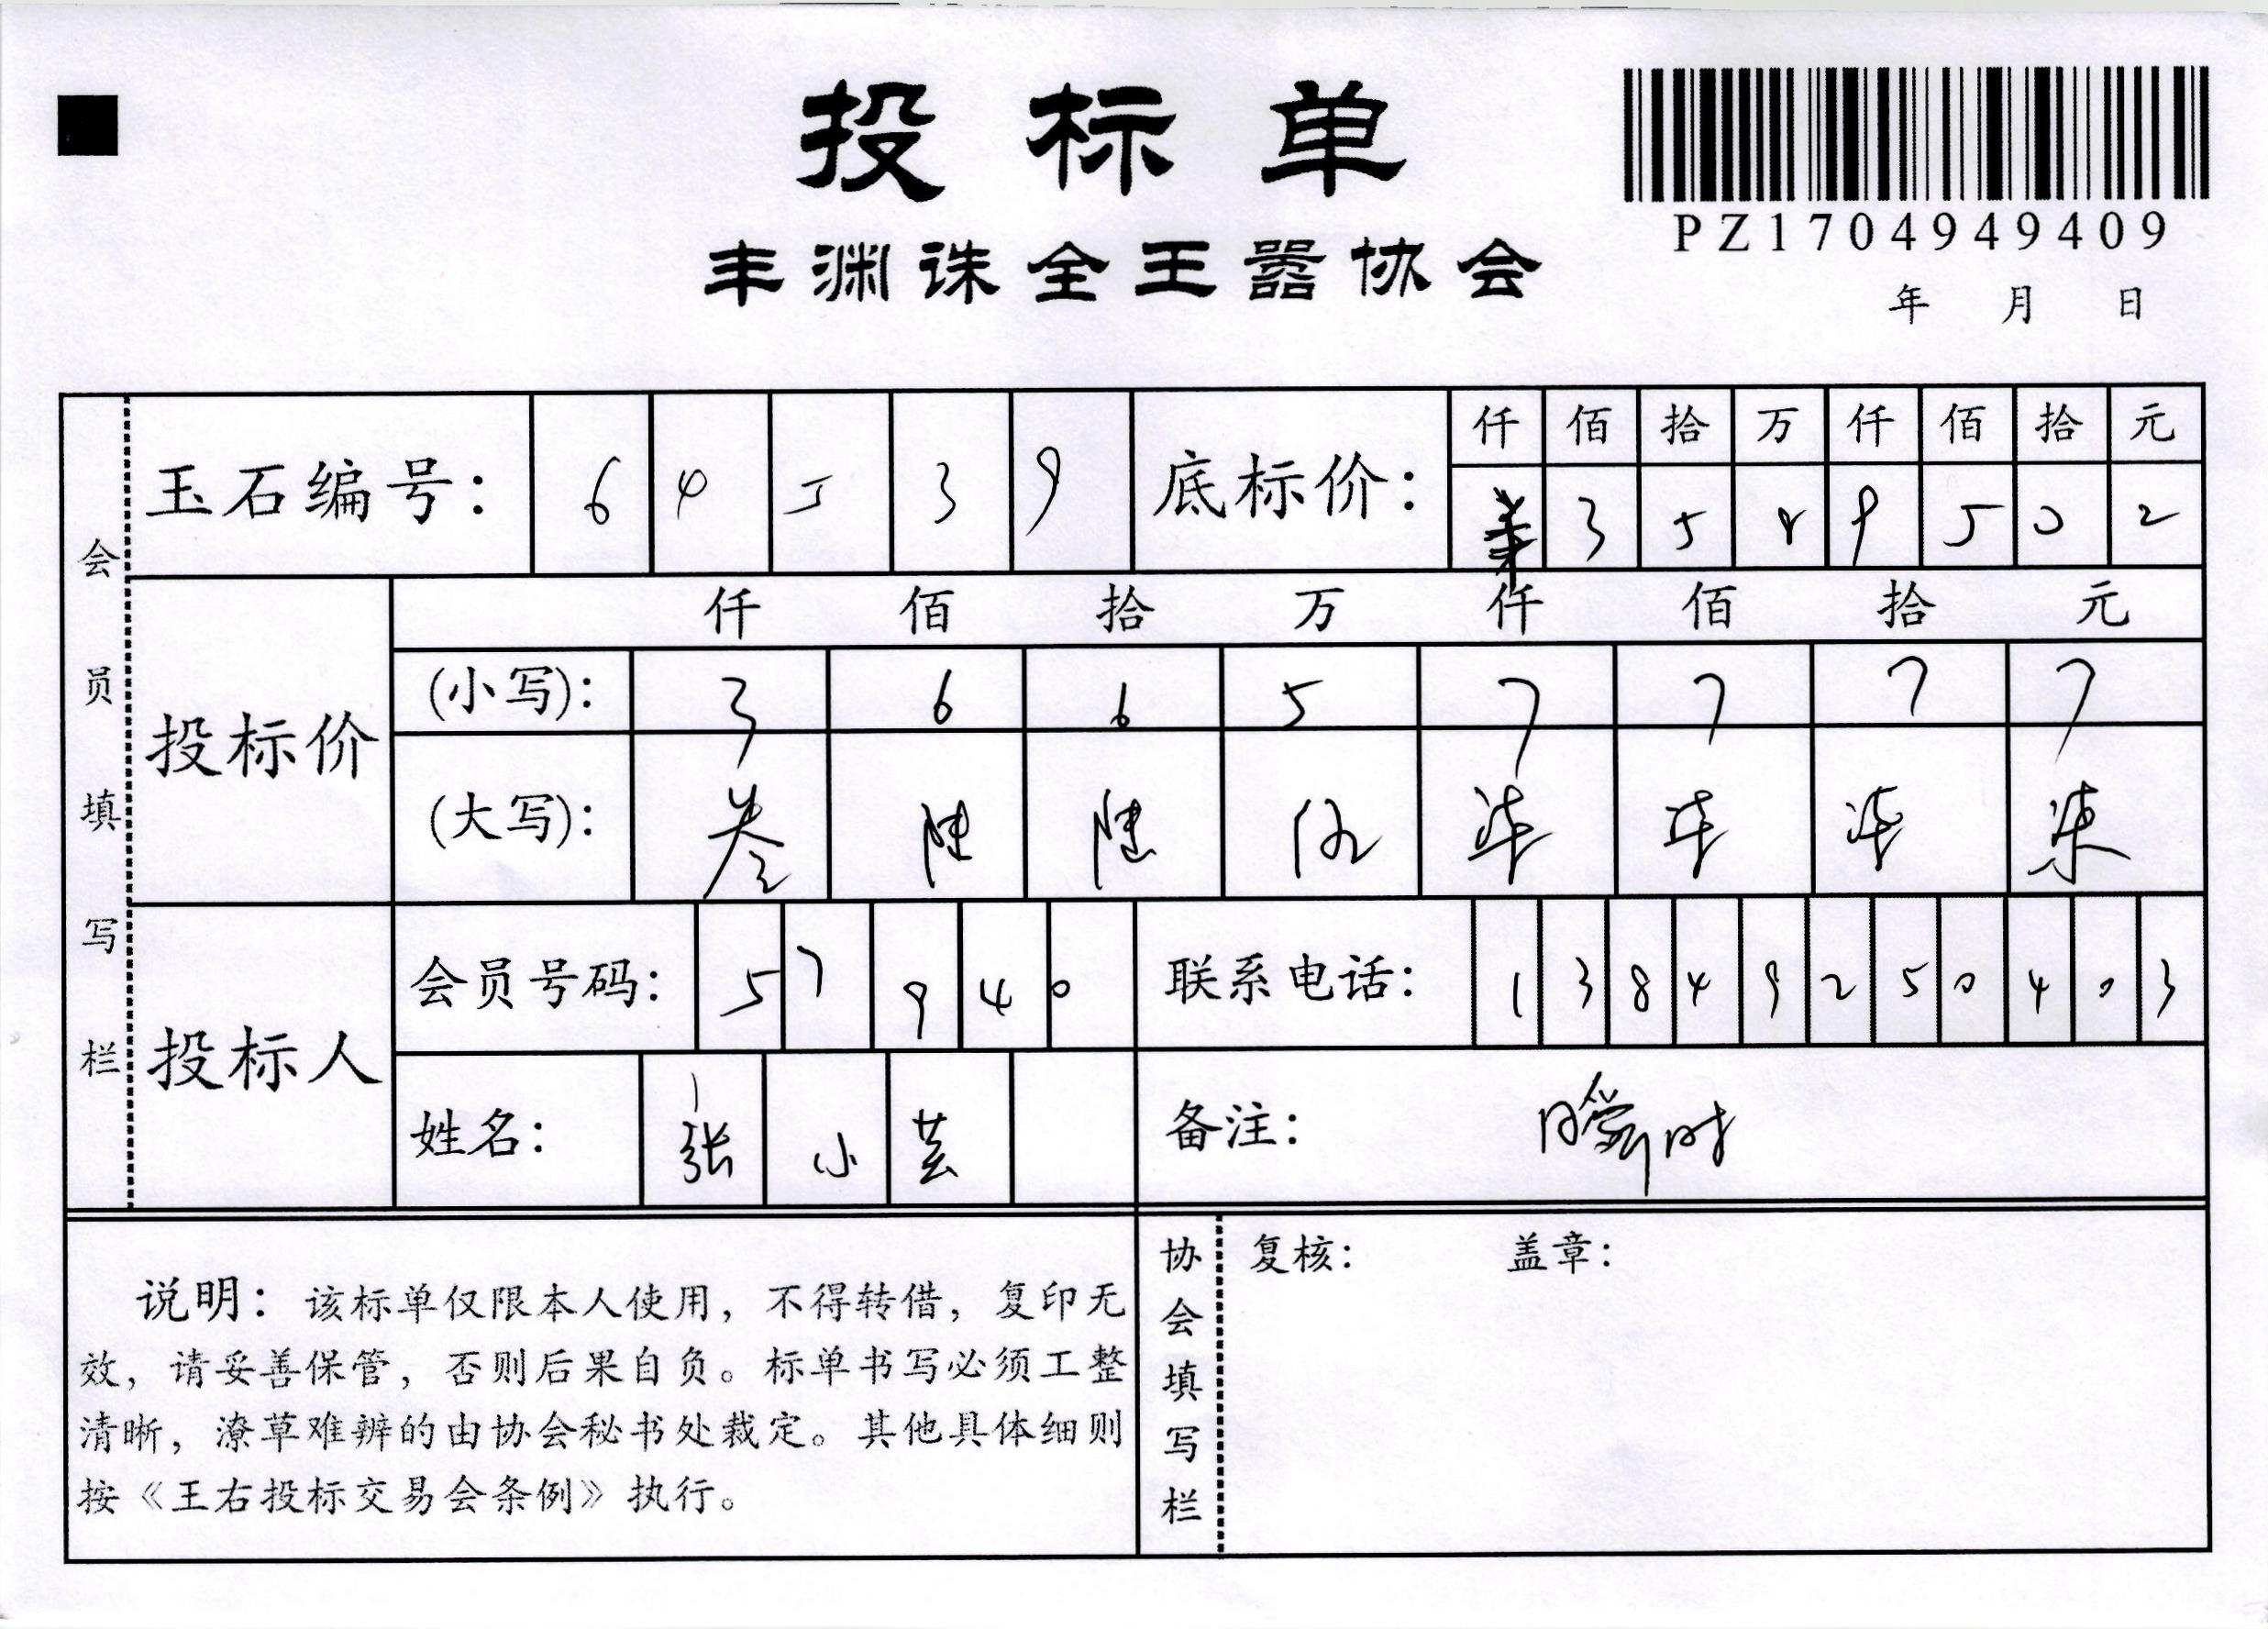 投标单
丰渊诛全王嚣协会
PZ1704949409
年 月 日
会员填写栏
玉石编号: 6 4 5 3 9
底标价: 仟 佰 拾 万 仟 佰 拾 元
3 5 8 9 5 0 2
投标价
仟 佰 拾 万 仟 佰 拾 元
(小写): 3 6 6 5 7 7 7 7
(大写): 叁 陆 陆 伍 柒 柒 柒 柒
投标人
会员号码: 5 7 9 4 0
联系电话: 1 3 8 4 9 2 5 0 4 0 3
姓名: 张 小 芸
备注: 瞬时
说明: 该标单仅限本人使用, 不得转借, 复印无
效, 请妥善保管, 否则后果自负。标单书写必须工整
清晰, 潦草难辨的由协会秘书处裁定。其他具体细则
按《王右投标交易会条例》执行。
协会填写栏
复核: 盖章: